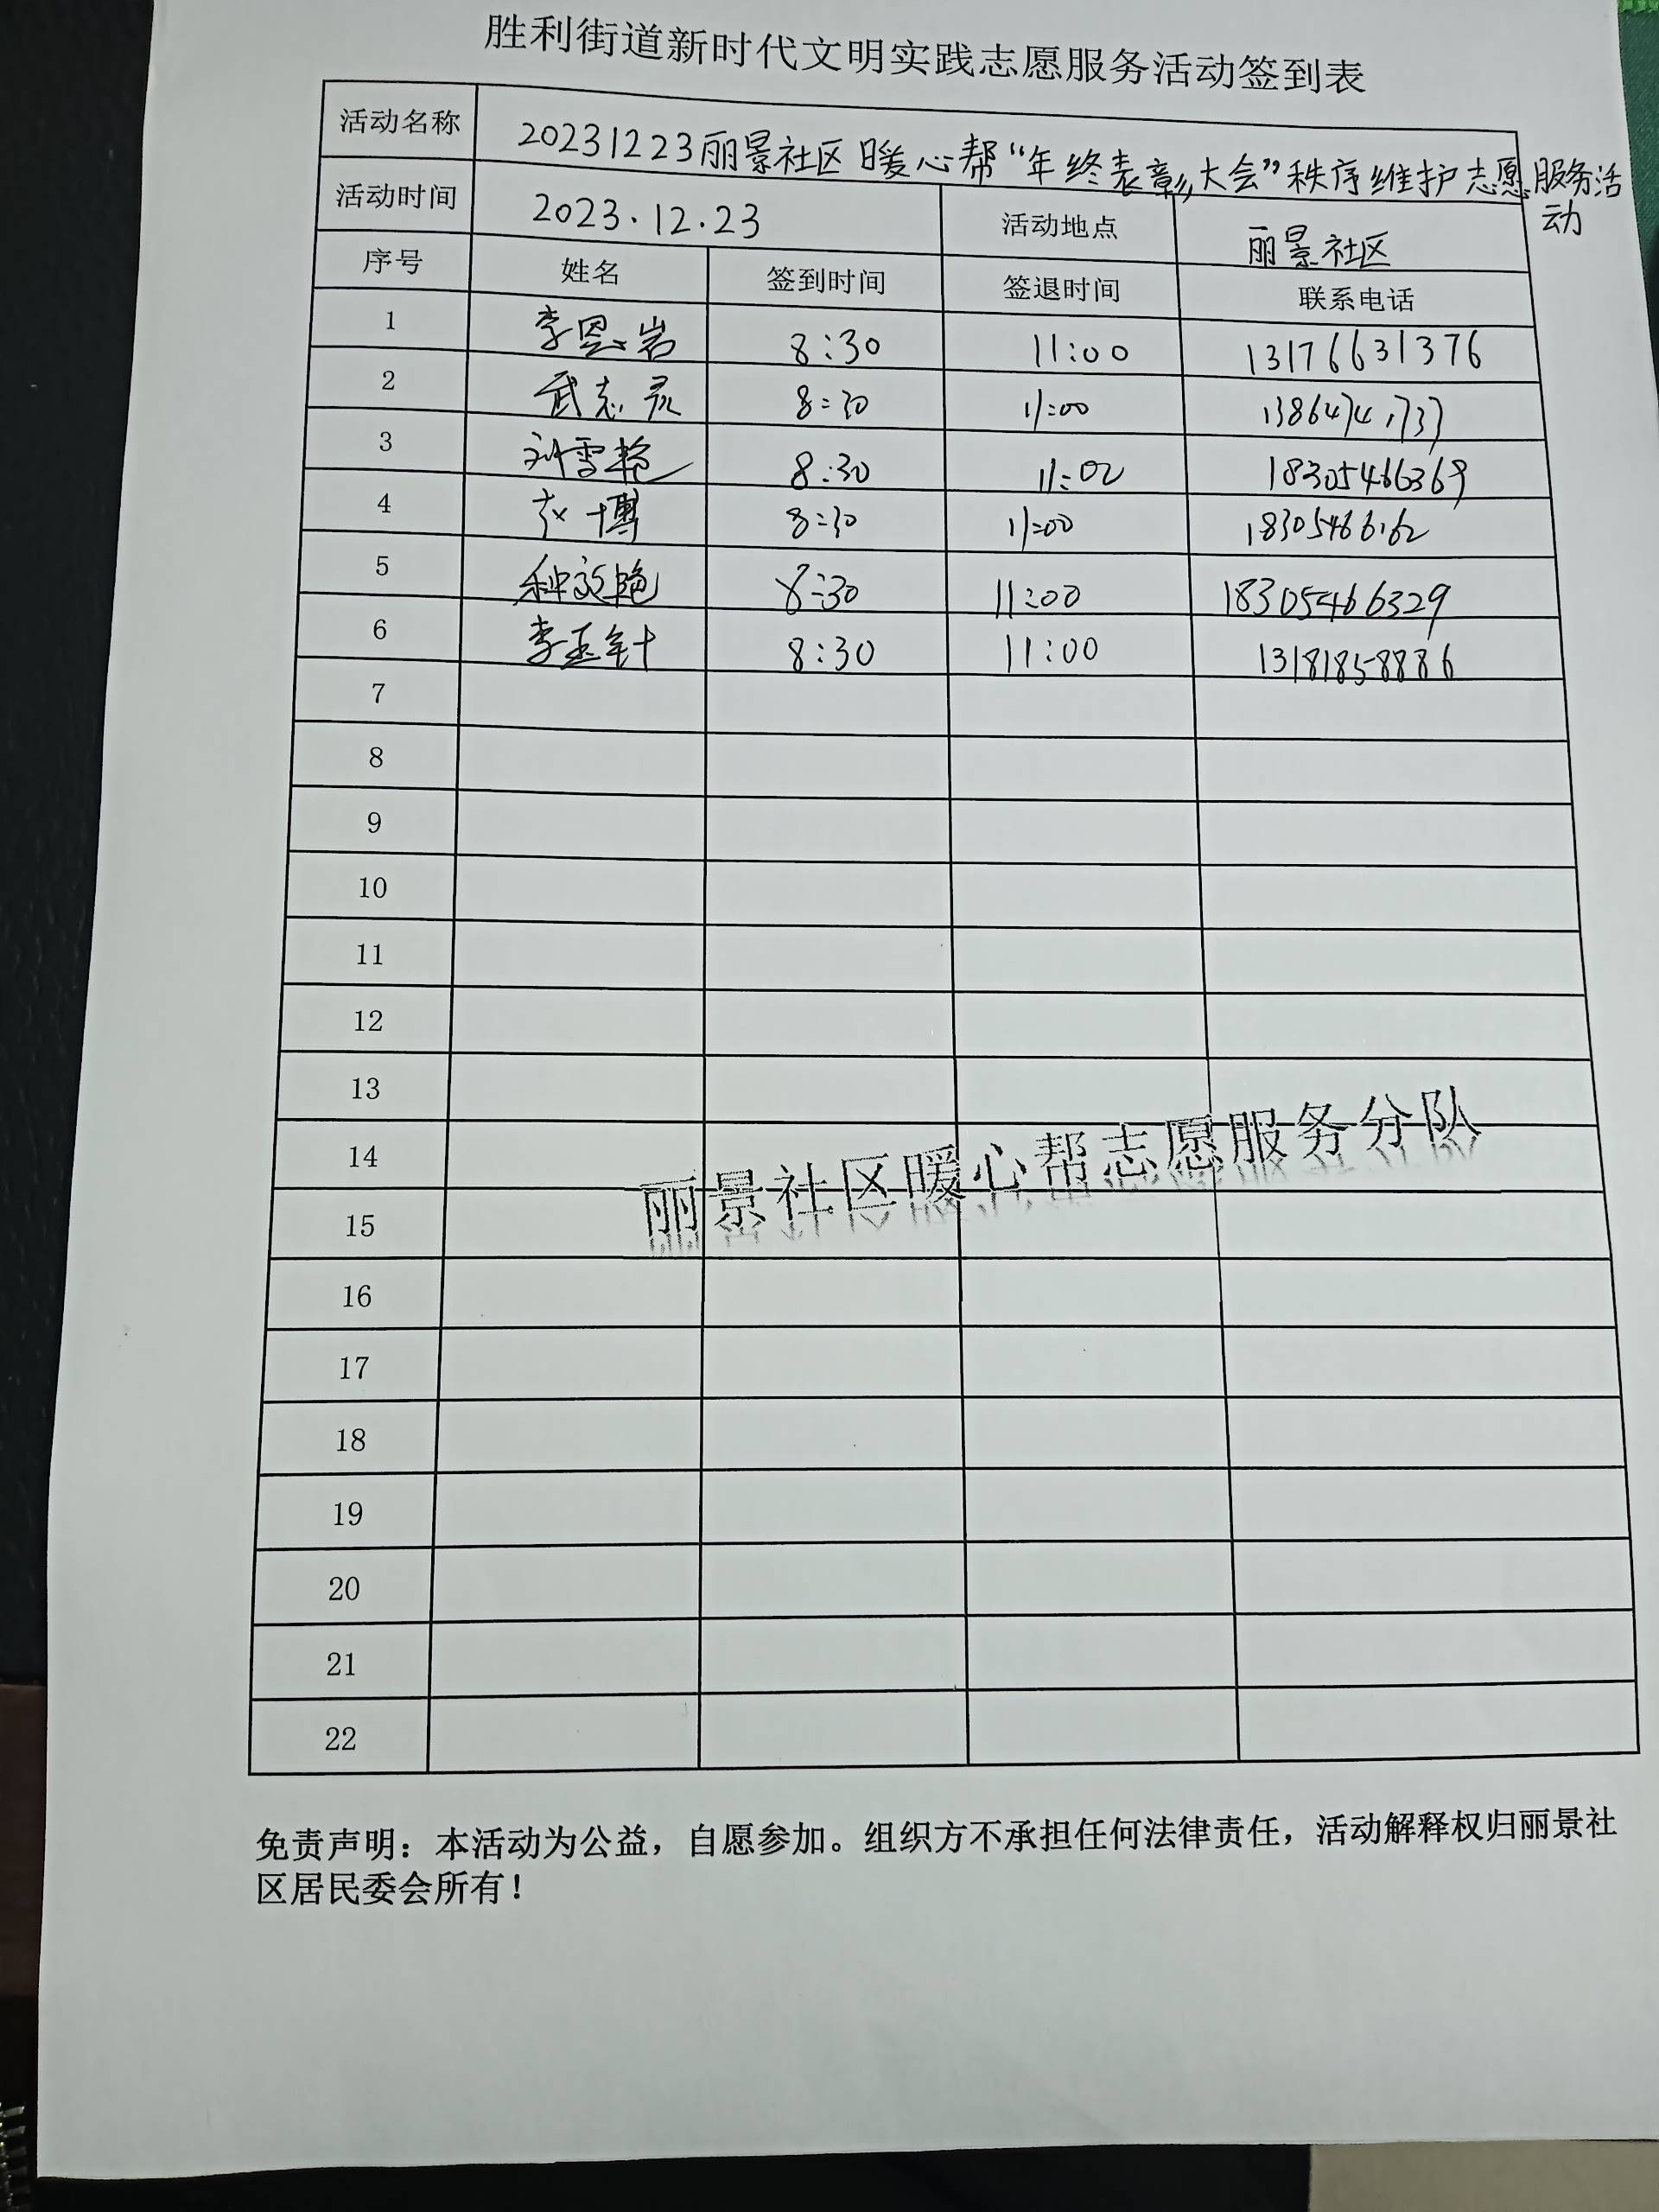 胜利街道新时代文明实践志愿服务活动签到表
活动名称 20231223丽景社区暖心帮“年终表彰大会”秩序维护志愿服务活
动
活动时间 2023.12.23 活动地点 丽景社区
序号 姓名 签到时间 签退时间 联系电话
1 李恩岩 8:30 11:00 13176631376
2 武志灵 8:30 11:00 13864741737
3 刘雪艳 8:30 11:00 18305466369
4 赵博 8:30 11:00 18305466162
5 种效艳 8:30 11:00 18305466329
6 李玉针 8:30 11:00 13181858886
7
8
9
10
11
12
13
14
丽景社区暖心帮志愿服务分队
15
16
17
18
19
20
21
22
免责声明：本活动为公益，自愿参加。组织方不承担任何法律责任，活动解释权归丽景社
区居民委会所有！